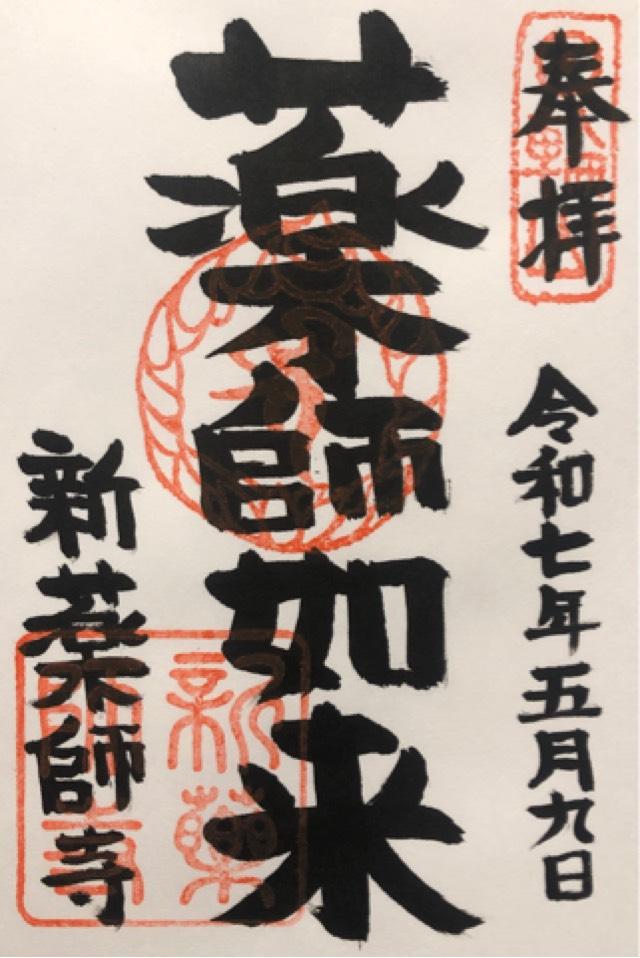 奉拝
令和七年五月九日
薬師如来
新薬師寺
新薬師寺